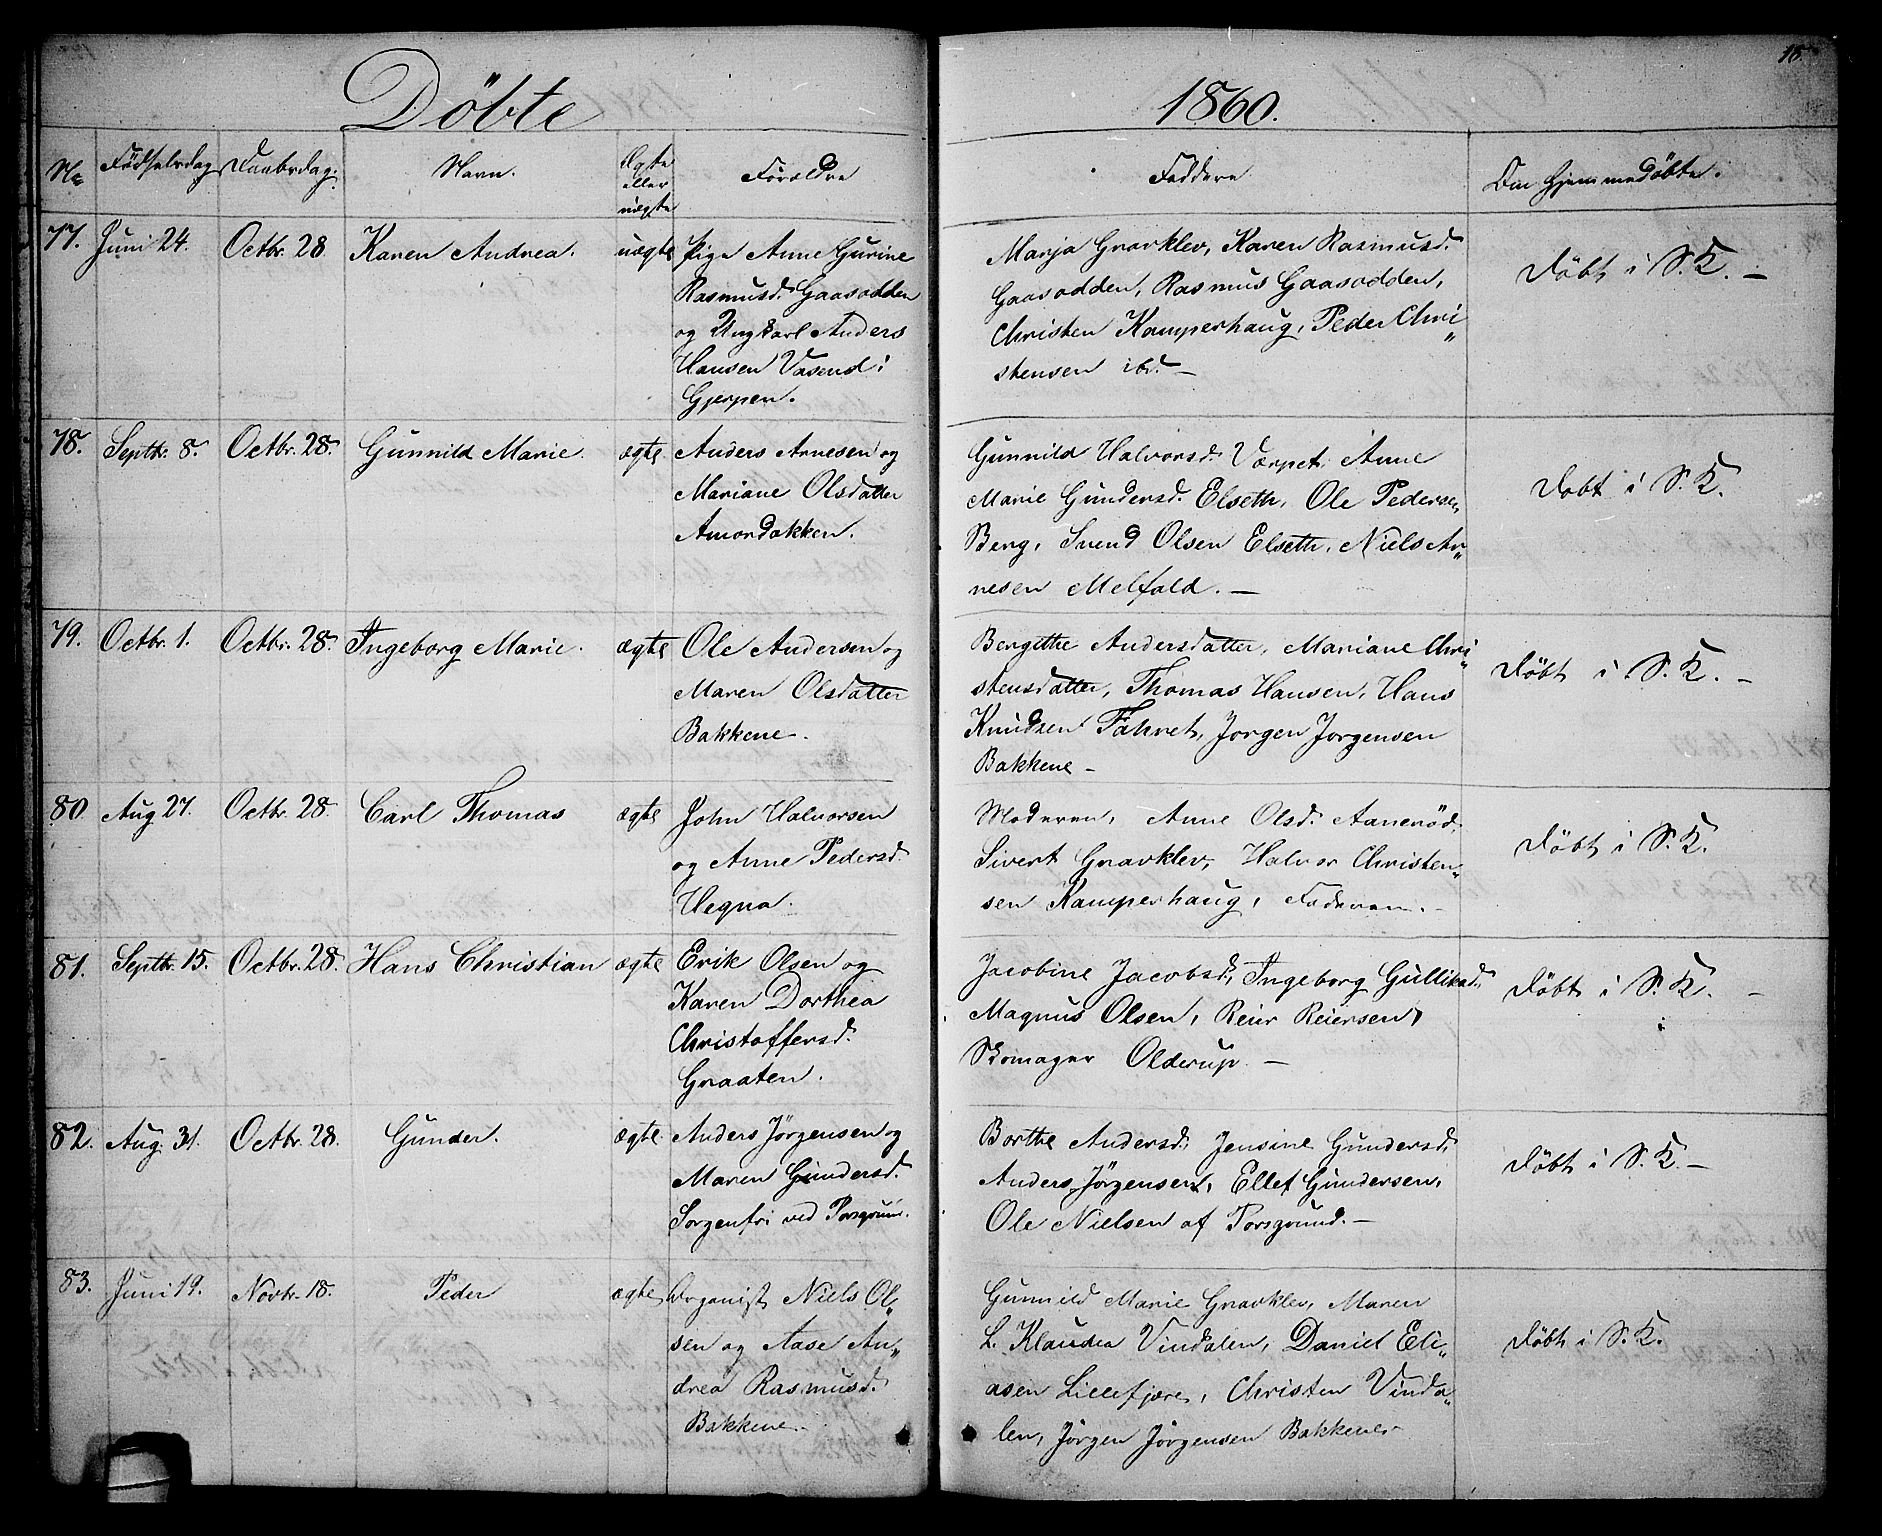 Döbte
1860.
18.
No
Fødselsdag
Daabsdag.
Navn.
Ægte
eller
uægte
Forældre
Faddere
Om hjemmedöbte.
77.
Juni 24.
Octbr. 28
Karen Andrea.
uægte
Pige Anne Gurine
Rasmusd. Gaasodden
og Ungkarl Anders
Hansen Vasend i
Gjerpen.
Marja Gravklev, Karen Rasmusd.
Gaasodden, Rasmus Gaasodden,
Christen Kamperhaug, Peder Chri
stensen ibd. —
Döbt i S. K. —
78.
Septbr. 8.
Octbr. 28.
Gunnild Marie.
ægte
Anders Arnesen og
Mariane Olsdatter
Amondbakken.
Gunnild Halvorsd. Værpet, Anne
Marie Gundersd. Elseth, Ole Pedersen
Berg, Svend Olsen Elseth, Niels Ar
nesen Melfald. —
Dobt i S. K.
79.
Octbr. 1.
Octbr. 28.
Ingeborg Marie.
ægte
Ole Andersen og
Maren Olsdatter
Bakkene.
Bergithe Andersdatter, Mariane Chri
stensdatter, Thomas Hansen, Hans
Knudsen Fahret, Jorgen Jorgensen
Bakkene —
Döbt i S. K. —
80.
Aug 27.
Octbr. 28.
Carl Thomas
ægte
John Halvorsen
og Anne Pedersd.
Hegna.
Moderen, Anne Olsd. Aanerød,
Sivert Gravklev, Halvor Christen
sen Kamperhaug, Faderen. —
Döbt i S. K.
81.
Septbr. 15.
Octbr. 28.
Hans Christian
ægte
Erik Olsen og
Karen Dorthea
Christoffersd.
Graaten.
Jacobine Jacobsd., Ingeborg Gulliksd.,
Magnus Olsen, Reier Reiersen,
Skomager Olderup. —
Döbt i S. K. —
82.
Aug. 31.
Octbr. 28.
Gunder.
ægte
Anders Jörgensen og
Maren Gundersd.
Sorgenfri ved Porsgrund.
Borthe Andersd., Jensine Gundersd.,
Anders Jörgensen, Ellef Gundersen,
Ole Nielsen af Porsgrund. —
Döbt i S. K. —
83.
Juni 19.
Novbr. 18.
Peder
ægte
Organist Niels Ol
sen og Aase An
drea Rasmusd.
Bakkene.
Gunnild Marie Gravklev, Maren
L. Klaudia Vindalen, Daniel Eli
asen Lillefjære, Christen Vinda
len, Jörgen Jörgensen Bakkene.
Döbt i S. K.